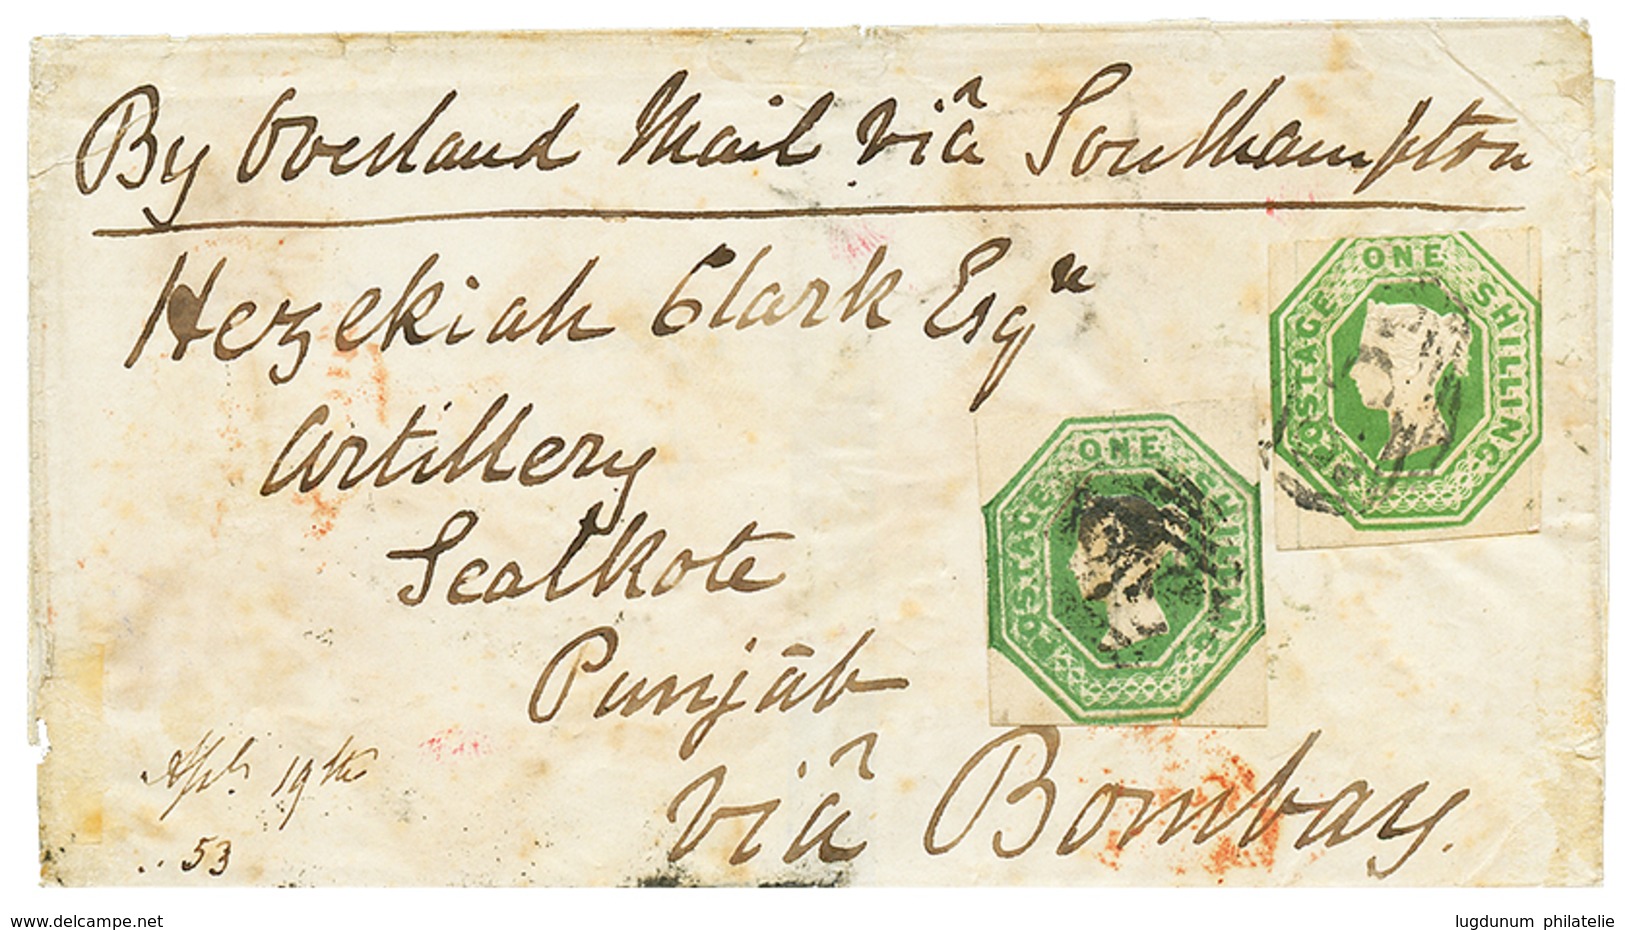 By Overland Mail viâ Southampton
Hezekiah Clark Esqr
Artillery
Sealkote
Punjāb
viâ Bombay.
Apl. 19th
.. 53
ONE SHILLING
POSTAGE
ONE SHILLING
POSTAGE
www.delcampe.net
lugdunum philatelie